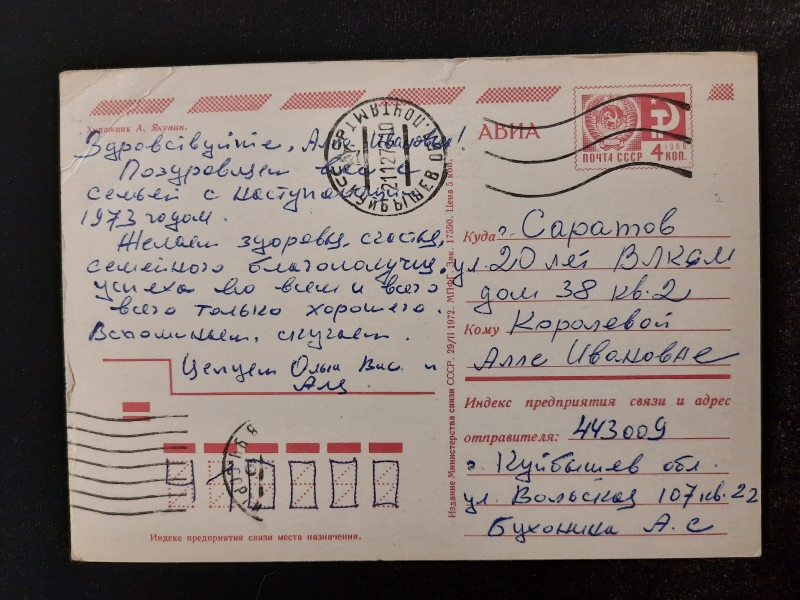 Художник А. Якунин.
Здравствуйте, Алла Ивановна!
Поздравляем Вас с
семьей с наступающим
1973 годом.
Желаем здоровья, счастья,
семейного благополучия,
успеха во всем и всего
всего только хорошего.
Вспоминаем, скучаем.
Целуем Ольга Вас. и
Аля
АВИА
ПОЧТА СССР 4 КОП.
1966
Куда г. Саратов
ул. 20 лет ВЛКСМ
дом 38 кв. 2
Кому Королевой
Алле Ивановне
Индекс предприятия связи и адрес
отправителя: 443009
г. Куйбышев обл.
ул. Вольская 107 кв. 22
А. С
Издание Министерства связи СССР. 29/II 1972. МПФГ. Зак. 17590. Цена 5 коп.
Индекс предприятия связи места назначения.